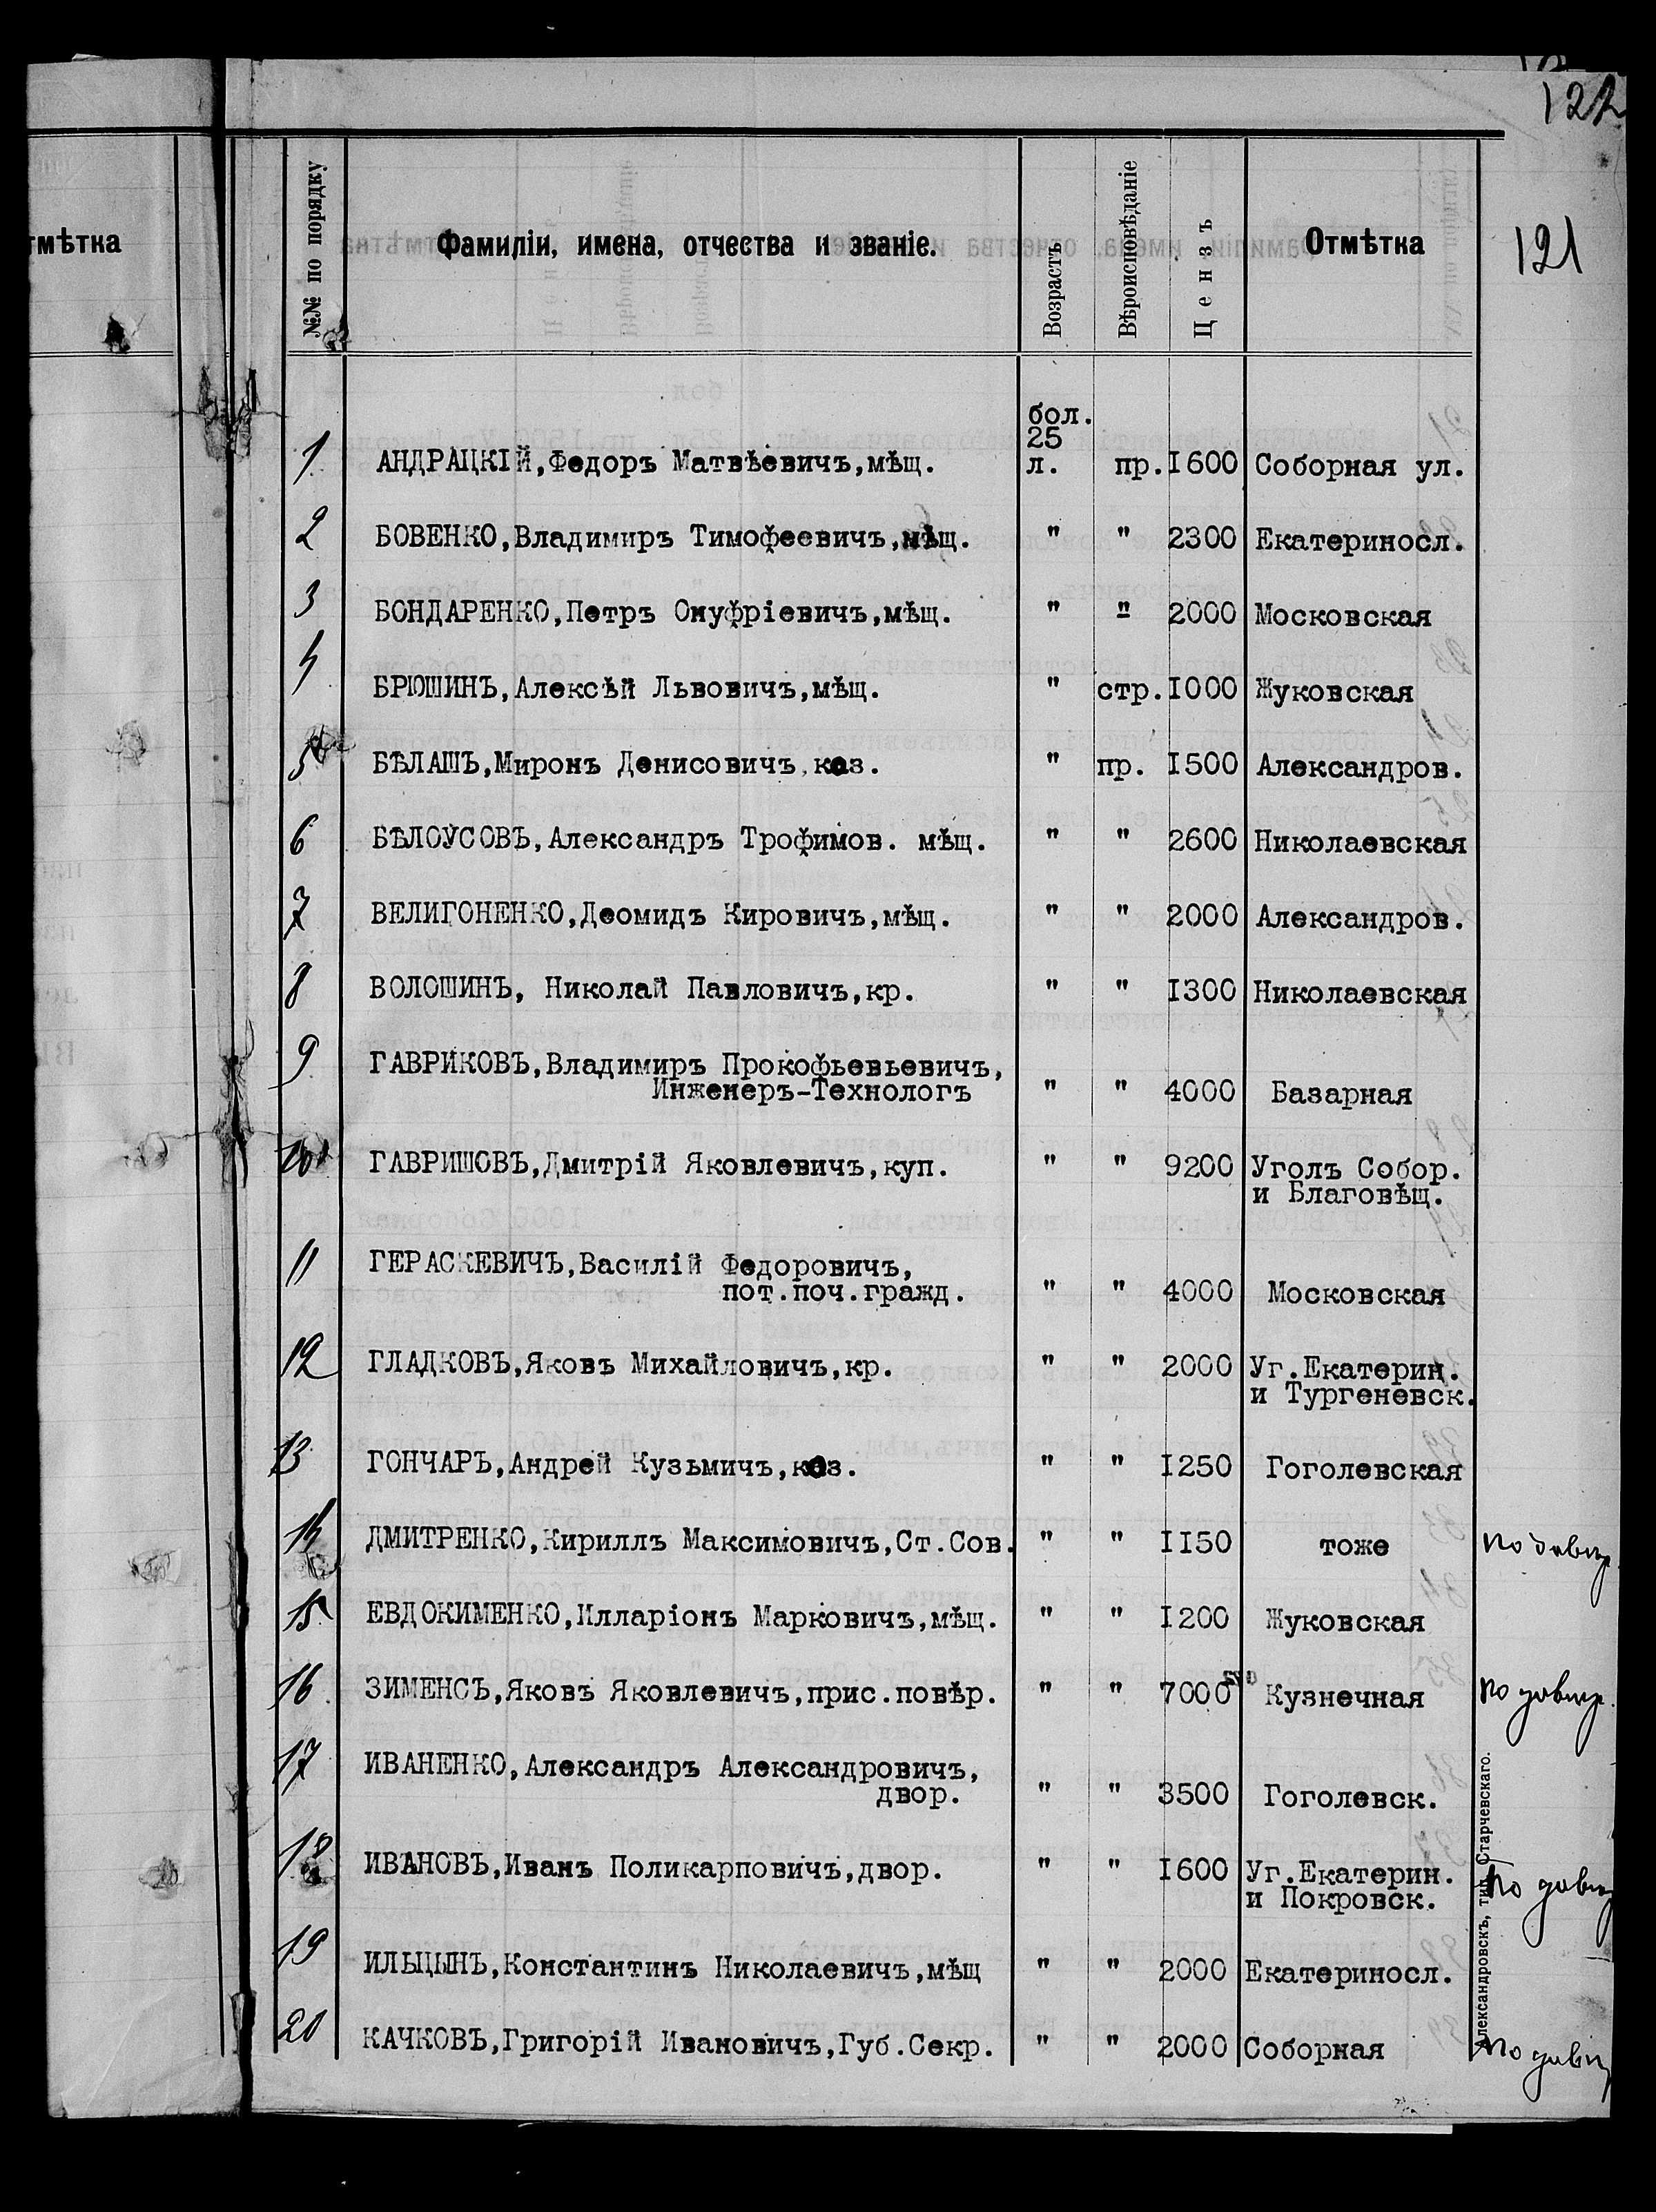 122
121
тмѣтка
№№ по порядку Фамиліи, имена, отчества и званіе. Возрастъ Вѣроисповѣданіе Цензъ Отмѣтка
бол.
25
1 АНДРАЦКІЙ,Федоръ Матвѣевичъ,мѣщ. л. пр. 1600 Соборная ул.
2 БОВЕНКО,Владимиръ Тимофеевичъ,мѣщ. " " 2300 Екатериносл.
3 БОНДАРЕНКО,Петръ Онуфріевичъ,мѣщ. " " 2000 Московская
4 БРЮШИНЪ,Алексѣй Львовичъ,мѣщ. " стр. 1000 Жуковская
5 БѢЛАШЪ,Миронъ Денисовичъ,каз. " пр. 1500 Александров.
6 БѢЛОУСОВЪ,Александръ Трофимов. мѣщ. " " 2600 Николаевская
7 ВЕЛИГОНЕНКО,Деомидъ Кировичъ,мѣщ. " " 2000 Александров.
8 ВОЛОШИНЪ, Николай Павловичъ,кр. " " 1300 Николаевская
9 ГАВРИКОВЪ,Владимиръ Прокофьевьевичъ,
Инженеръ-Технологъ " " 4000 Базарная
10 ГАВРИШОВЪ,Дмитрій Яковлевичъ,куп. " " 9200 Уголъ Собор.
и Благовѣщ.
11 ГЕРАСКЕВИЧЪ,Василій Федоровичъ,
пот.поч.гражд. " " 4000 Московская
12 ГЛАДКОВЪ,Яковъ Михайловичъ,кр. " " 2000 Уг.Екатерин.
и Тургеневск.
13 ГОНЧАРЪ,Андрей Кузьмичъ,каз. " " 1250 Гоголевская
14 ДМИТРЕНКО,Кириллъ Максимовичъ,Ст.Сов. " " 1150 тоже
15 ЕВДОКИМЕНКО,Илларіонъ Марковичъ,мѣщ. " " 1200 Жуковская
16 ЗИМЕНСЪ,Яковъ Яковлевичъ,прис.повѣр. " " 7000 Кузнечная
17 ИВАНЕНКО,Александръ Александровичъ,
двор. " " 3500 Гоголевск.
18 ИВАНОВЪ,Иванъ Поликарповичъ,двор. " " 1600 Уг.Екатерин.
и Покровск.
19 ИЛЬЦЫНЪ,Константинъ Николаевичъ,мѣщ " " 2000 Екатериносл.
20 КАЧКОВЪ,Григорій Ивановичъ,Губ.Секр. " " 2000 Соборная
Александровскъ, тип. Старчевскаго.